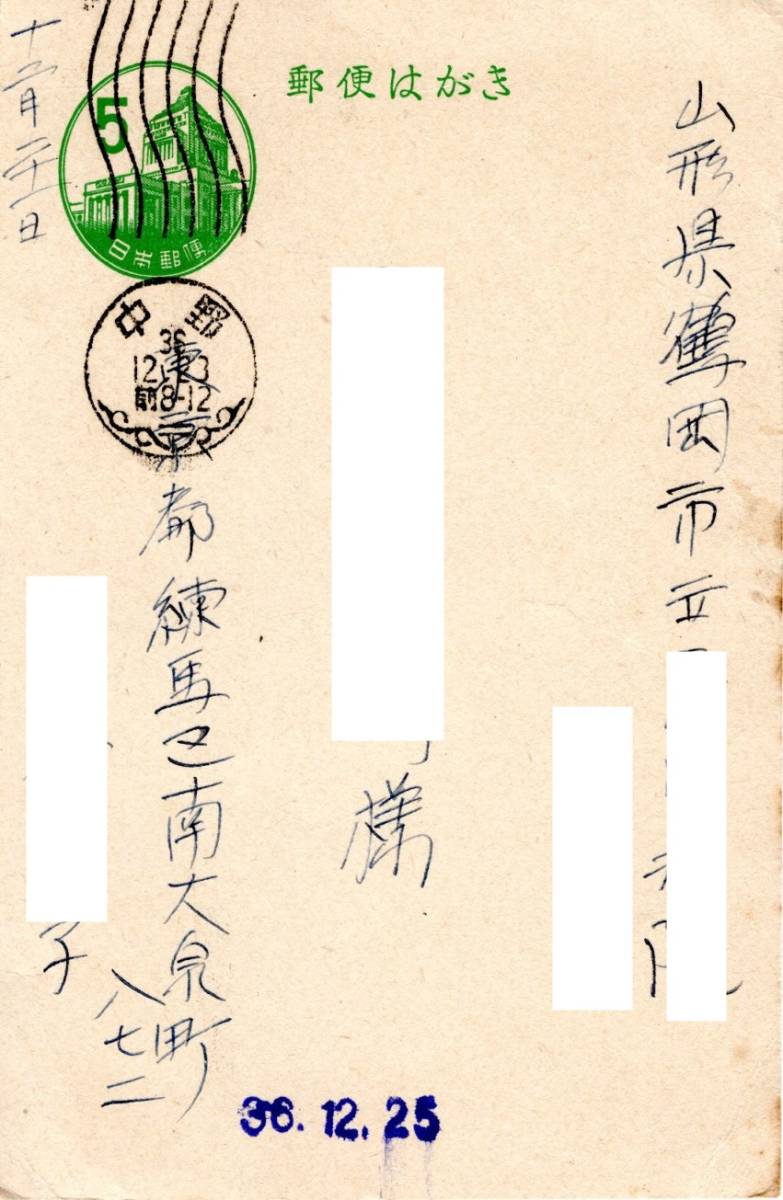 郵便はがき
山形県鶴岡市立
様
十二月二十一日
5
日本郵便
中野
36
12
前8-12
東京都練馬区南大泉町
八七二
子
36.12.25